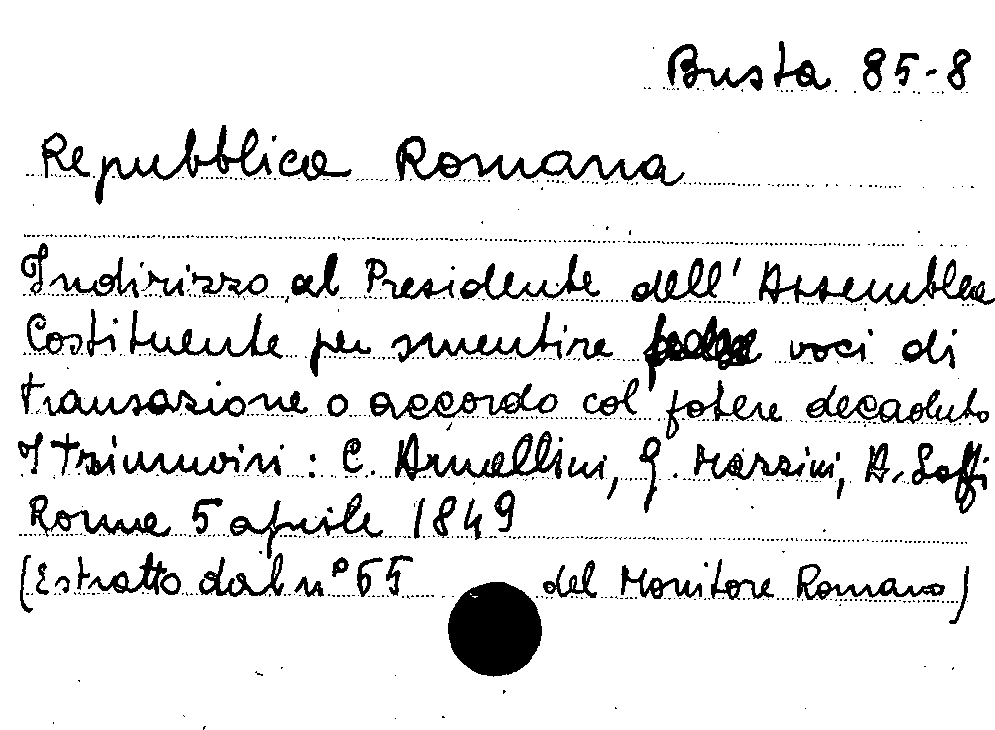 Busta 85-8
Repubblica Romana
Indirizzo al Presidente dell'Assemblea
Costituente per smentire voci di
transazione o accordo col potere decaduto
I Triumviri : C. Armellini, G. Mazzini, A. Saffi
Roma 5 aprile 1849
(Estratto dal n° 65 del Monitore Romano)